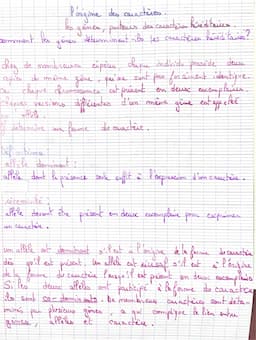 l'origine des caractères.
les gènes, porteurs des caractères héréditaires.
comment les gènes déterminent-ils les caractères héréditaires?
chez de nombreuses espèces chaque individu possède deux
copies du même gène, qui ne sont pas forcément identique.
chaque chromosomes est présent en deux exemplaires.
versions différentes d'un même gène est appelée
allèle.
détermine une forme de caractère.
Définitions:
allèle dominant:
allèle dont la présence seule suffit à l'expression d'un caractère.
récessivité:
allèle devant être présent en deux exemplaire pour s'exprimer
un caractère.
un allèle est dominant s'il est à l'origine de la forme du caractère
dès qu'il est présent. Un allèle est récessif s'il est à l'origine
de la forme du caractère lorsqu'il est présent en deux exemplaires
Si les deux allèles ont participé à la forme du caractère
ils sont co-dominants. De nombreux caractères sont déter-
minés par plusieurs gènes, ce qui complique le lien entre
gènes, allèles et caractère.